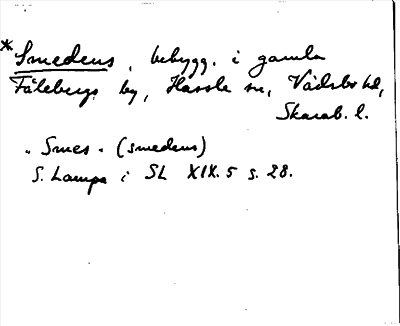 *Smedens, bebygg. i gamla
Fäleberg by, Hassle sn, Vadsbo hd,
Skarab. l.
"Smes" (smedens)
S. Lampa i SL XIX. 5 s. 28.